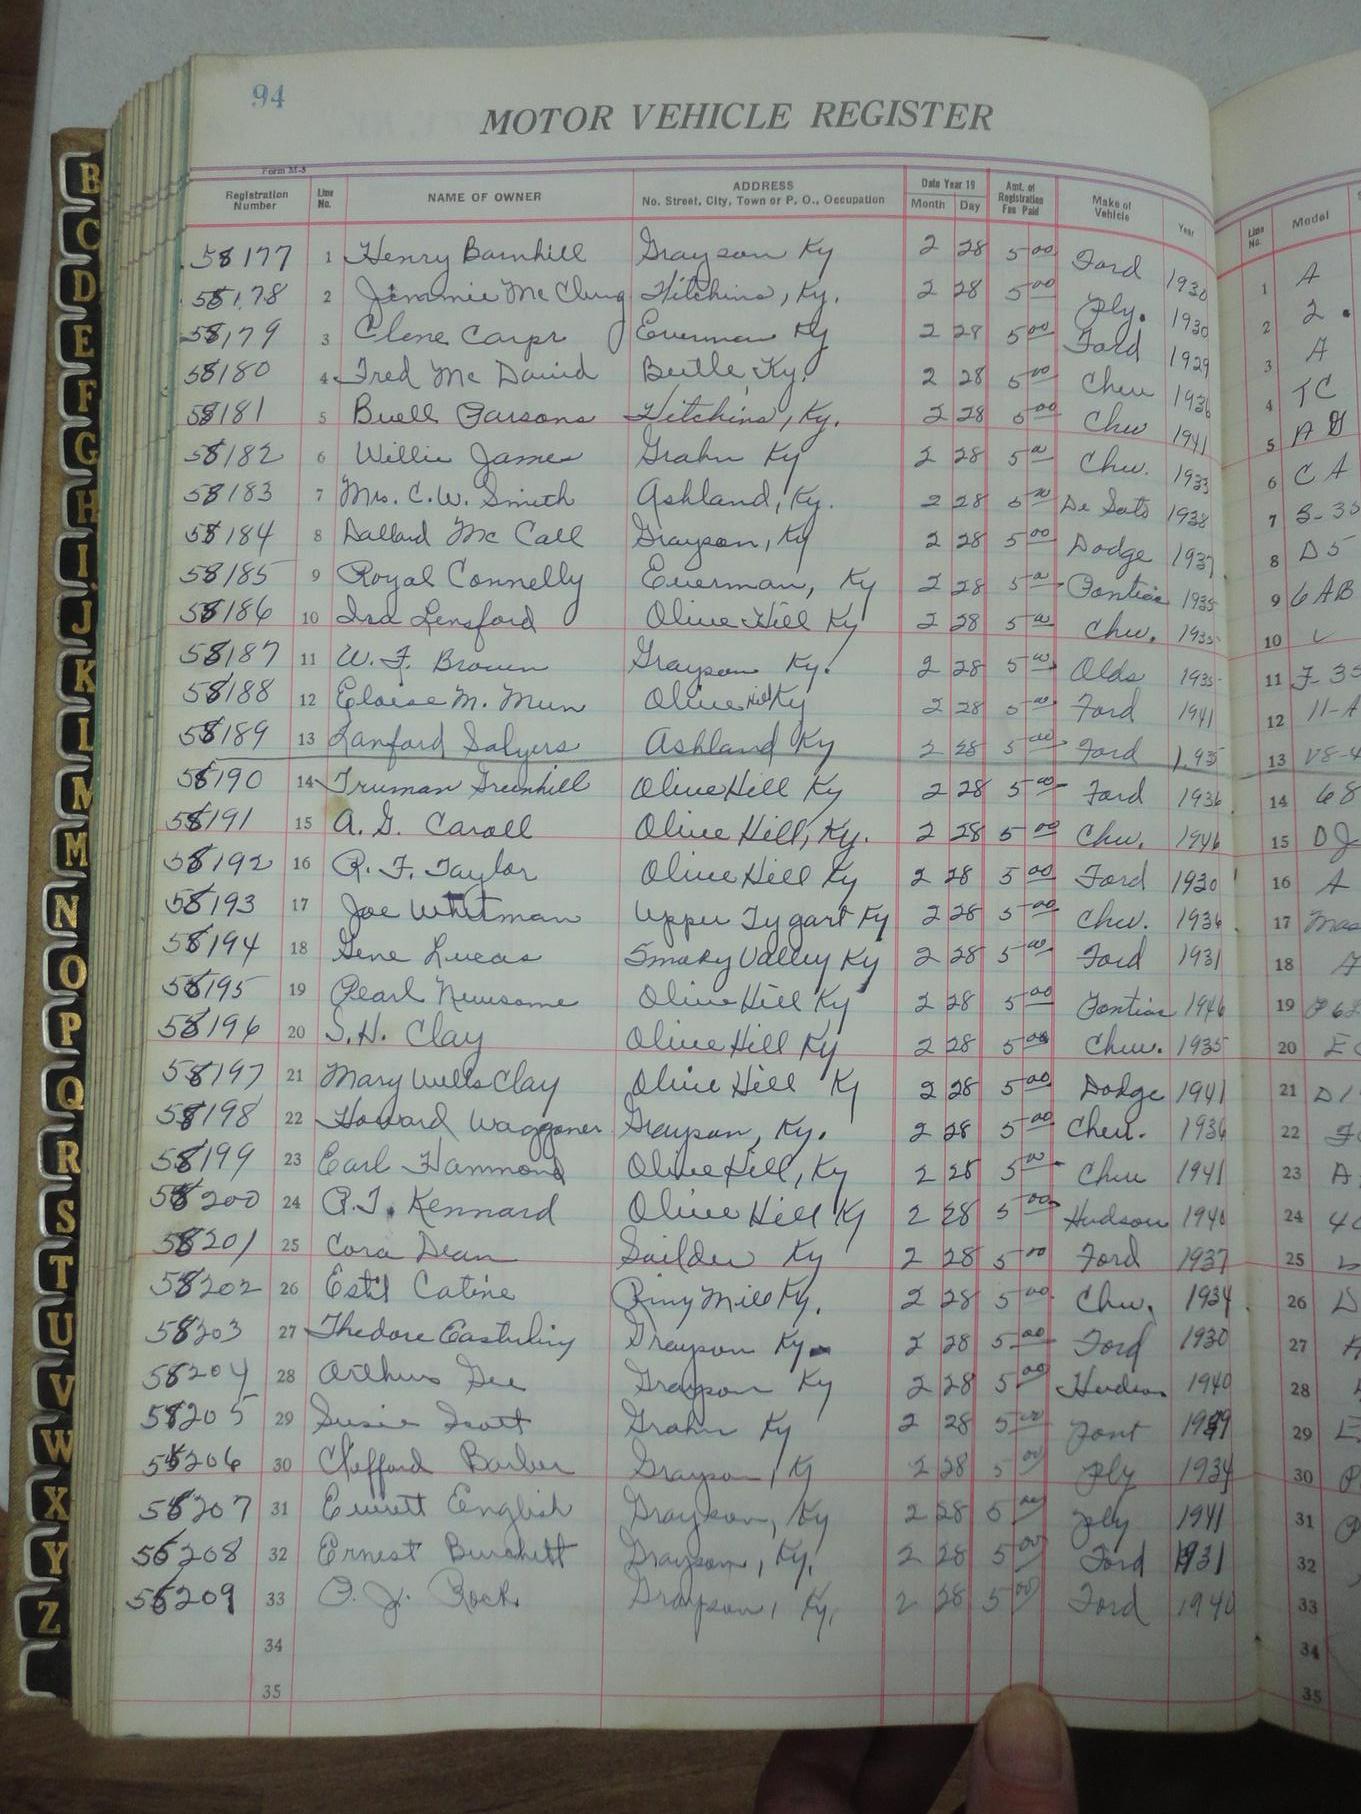 94
MOTOR VEHICLE REGISTER
Form M-8
Registration Number Line No. NAME OF OWNER ADDRESS No. Street, City, Town or P. O., Occupation Date Year 19 Month Day Amt. of Registration Fee Paid Make of Vehicle Year Line No. Model
58177 1 Henry Barnhill Grayson Ky 2 28 5 00 Ford 1930 1 A
58178 2 Jimmie McClung Hitchins, Ky. 2 28 5 00 Ply. 1930 2 2
58179 3 Clene Carpr Everman Ky 2 28 5 00 Ford 1929 3 A
58180 4 Fred Mc David Beetle, Ky. 2 28 5 00 Chev 1936 4 TC
58181 5 Buell Parsons Hitchins, Ky. 2 28 5 00 Chev 1941 5 A G
58182 6 Willie James Grahn Ky 2 28 5 00 Chev. 1933 6 CA
58183 7 Mrs. C.W. Smith Ashland, Ky. 2 28 5 00 De Soto 1938 7 S-35
58184 8 Dallard Mc Call Grayson, Ky 2 28 5 00 Dodge 1937 8 D5
58185 9 Royal Connelly Everman, Ky 2 28 5 00 Pontiac 1935 9 6AB
58186 10 Ira Lensford Olive Hill Ky 2 28 5 00 Chev. 1935 10
58187 11 W. F. Brown Grayson Ky. 2 28 5 00 Olds 1935 11 F-35
58188 12 Eloise M. Olive Hill Ky 2 28 5 00 Ford 1941 12 11-A
58189 13 Lanford Salyers Ashland Ky 2 28 5 00 Ford 1935 13 V8-4
58190 14 Truman Greenhill Olive Hill Ky 2 28 5 00 Ford 1936 14 68
58191 15 A. G. Caroll Olive Hill, Ky. 2 28 5 00 Chev. 1946 15 DJ
58192 16 R. F. Taylor Olive Hill Ky 2 28 5 00 Ford 1930 16 A
58193 17 Joe Whitman Upper Tygart Ky 2 28 5 00 Chev. 1936 17 Mas
58194 18 Gene Lucas Smoky Valley Ky 2 28 5 00 Ford 1931 18 A
58195 19 Pearl Newsome Olive Hill Ky 2 28 5 00 Pontiac 1946 19
58196 20 S. H. Clay Olive Hill Ky 2 28 5 00 Chev. 1935 20 EC
58197 21 Mary Wells Clay Olive Hill Ky 2 28 5 00 Dodge 1941 21 D1
58198 22 Howard Waggoner Grayson, Ky. 2 28 5 00 Chev. 1936 22
58199 23 Earl Hammond Olive Hill, Ky 2 28 5 00 Chev 1941 23 A
58200 24 R.T. Kennard Olive Hill Ky 2 28 5 00 Hudson 1940 24 40
58201 25 Cora Dean Soilder Ky 2 28 5 00 Ford 1937 25
58202 26 Estil Catine Piny Mill Ky. 2 28 5 00 Chev. 1934 26 D
58203 27 Thedore Easterling Grayson Ky. 2 28 5 00 Ford 1930 27 A
58204 28 Arthur Gee Grayson Ky 2 28 5 00 Hudson 1940 28
58205 29 Susie Scott Grahn Ky 2 28 5 00 Pont 1939 29 E
58206 30 Clifford Barber Grayson, Ky 2 28 5 00 Ply 1934 30 P
58207 31 Everett English Grayson, Ky 2 28 5 00 Ply 1941 31 P
58208 32 Ernest Burchett Grayson, Ky. 2 28 5 00 Ford 1931 32
58209 33 O. J. Rock Grayson, Ky. 2 28 5 00 Ford 1940 33
34 34
35 35
B
C
D
E
F
G
H
I
J
K
L
M
M
N
O
P
Q
R
S
T
U
V
W
X
Y
Z